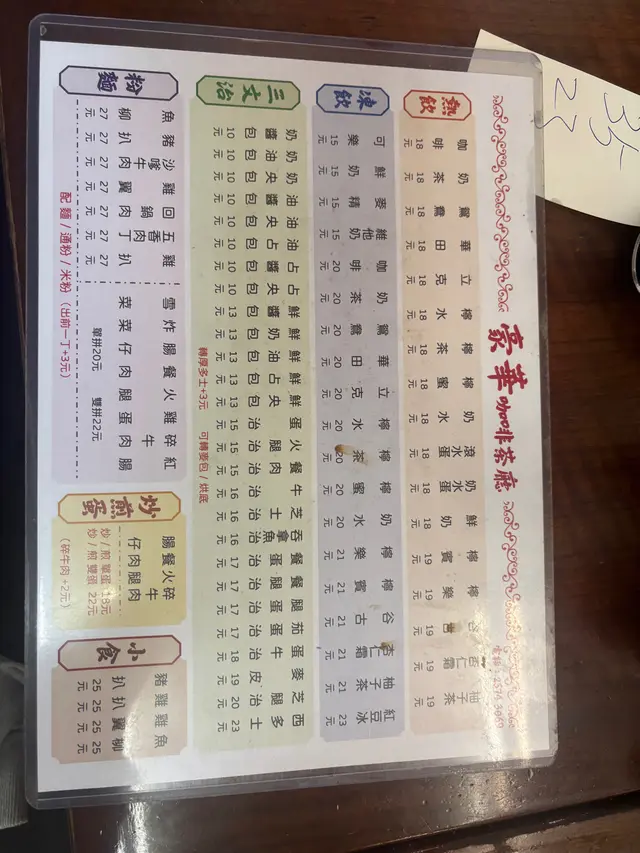 豪華咖啡茶廳
熱飲
咖啡 18元
奶茶 18元
鴛鴦 18元
華田 18元
立克 18元
檸水 18元
檸茶 18元
檸蜜 18元
奶水 18元
滾水蛋 18元
奶水蛋 18元
鮮奶 18元
檸賓 19元
檸樂 19元
谷古 19元
杏仁霜 19元
柚子茶 19元
凍飲
可樂 15元
鮮奶 15元
麥精 15元
維他奶 15元
咖啡 20元
奶茶 20元
鴛鴦 20元
華田 20元
立克 20元
檸水 20元
檸茶 20元
檸蜜 20元
奶水 20元
檸樂 21元
檸賓 21元
谷古 21元
杏仁霜 21元
柚子茶 21元
紅豆冰 23元
三文治
奶醬包 10元
奶油包 10元
奶央包 10元
油醬包 10元
油央包 10元
油占包 10元
占醬包 10元
占央包 10元
鮮醬包 13元
鮮奶包 13元
鮮油包 13元
鮮占包 13元
鮮央包 13元
蛋治 15元
火腿治 15元
餐肉治 15元
牛治 16元
芝士治 16元
吞拿魚治 16元
餐蛋治 17元
餐腿治 17元
腿蛋治 17元
茄蛋治 17元
蛋牛治 18元
麥皮 19元
芝腿治 20元
西多士 23元
轉厚多士+3元 可轉麥包 / 烘底
粉麵
魚柳 27元
豬扒 27元
沙嗲牛肉 27元
雞翼 27元
回鍋肉 27元
五香肉丁 27元
雞扒 27元
雪菜
炸菜
腸仔
餐肉
火腿
雞蛋
碎牛肉
紅腸
單拼20元 雙拼22元
配 麵 / 通粉 / 米粉 (出前一丁+3元)
炒煎蛋
腸仔
餐肉
火腿
碎牛肉
炒 / 煎 單蛋 18元
炒 / 煎 雙蛋 22元
(碎牛肉 +2元)
小食
豬扒 25元
雞扒 25元
雞翼 25元
魚柳 25元